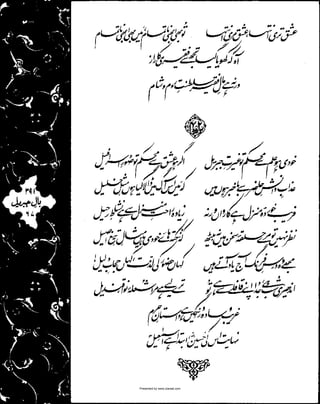 عشق تری انتہا عشق مری انتہا تو بھی ابھی ناتمام میں بھی ابھی ناتمام
آہ کہ کھویا گیا تجھ سے فقیری کا راز
ورنہ ہے مال فقیر سلطنت روم و شام
خودی ہو علم سے محکم تو غیرت جبریل اگر ہو عشق سے محکم تو صور اسرافیل
عذاب دانش حاضر سے باخبر ہوں میں کہ میں اس آگ میں ڈالا گیا ہوں مثل خلیل
فریب خوردۂ منزل ہے کارواں ورنہ زیادہ راحت منزل سے ہے نشاط رحیل
نظر نہیں تو مرے حلقۂ سخن میں نہ بیٹھ کہ نکتہ ہائے خودی ہیں مثال تیغ اصیل
مجھے وہ درس فرنگ آج یاد آتے ہیں کہاں حضور کی لذت کہاں حجاب دلیل
اندھیری شب ہے جدا اپنے قافلے سے ہے تو ترے لیے ہے مرا شعلۂ نوا قندیل
غریب و سادہ و رنگیں ہے داستان حرم
نہایت اس کی حسینؓ ابتدا ہے اسمٰعیلؑ
۳۹۱
بال جبریل
۶۷